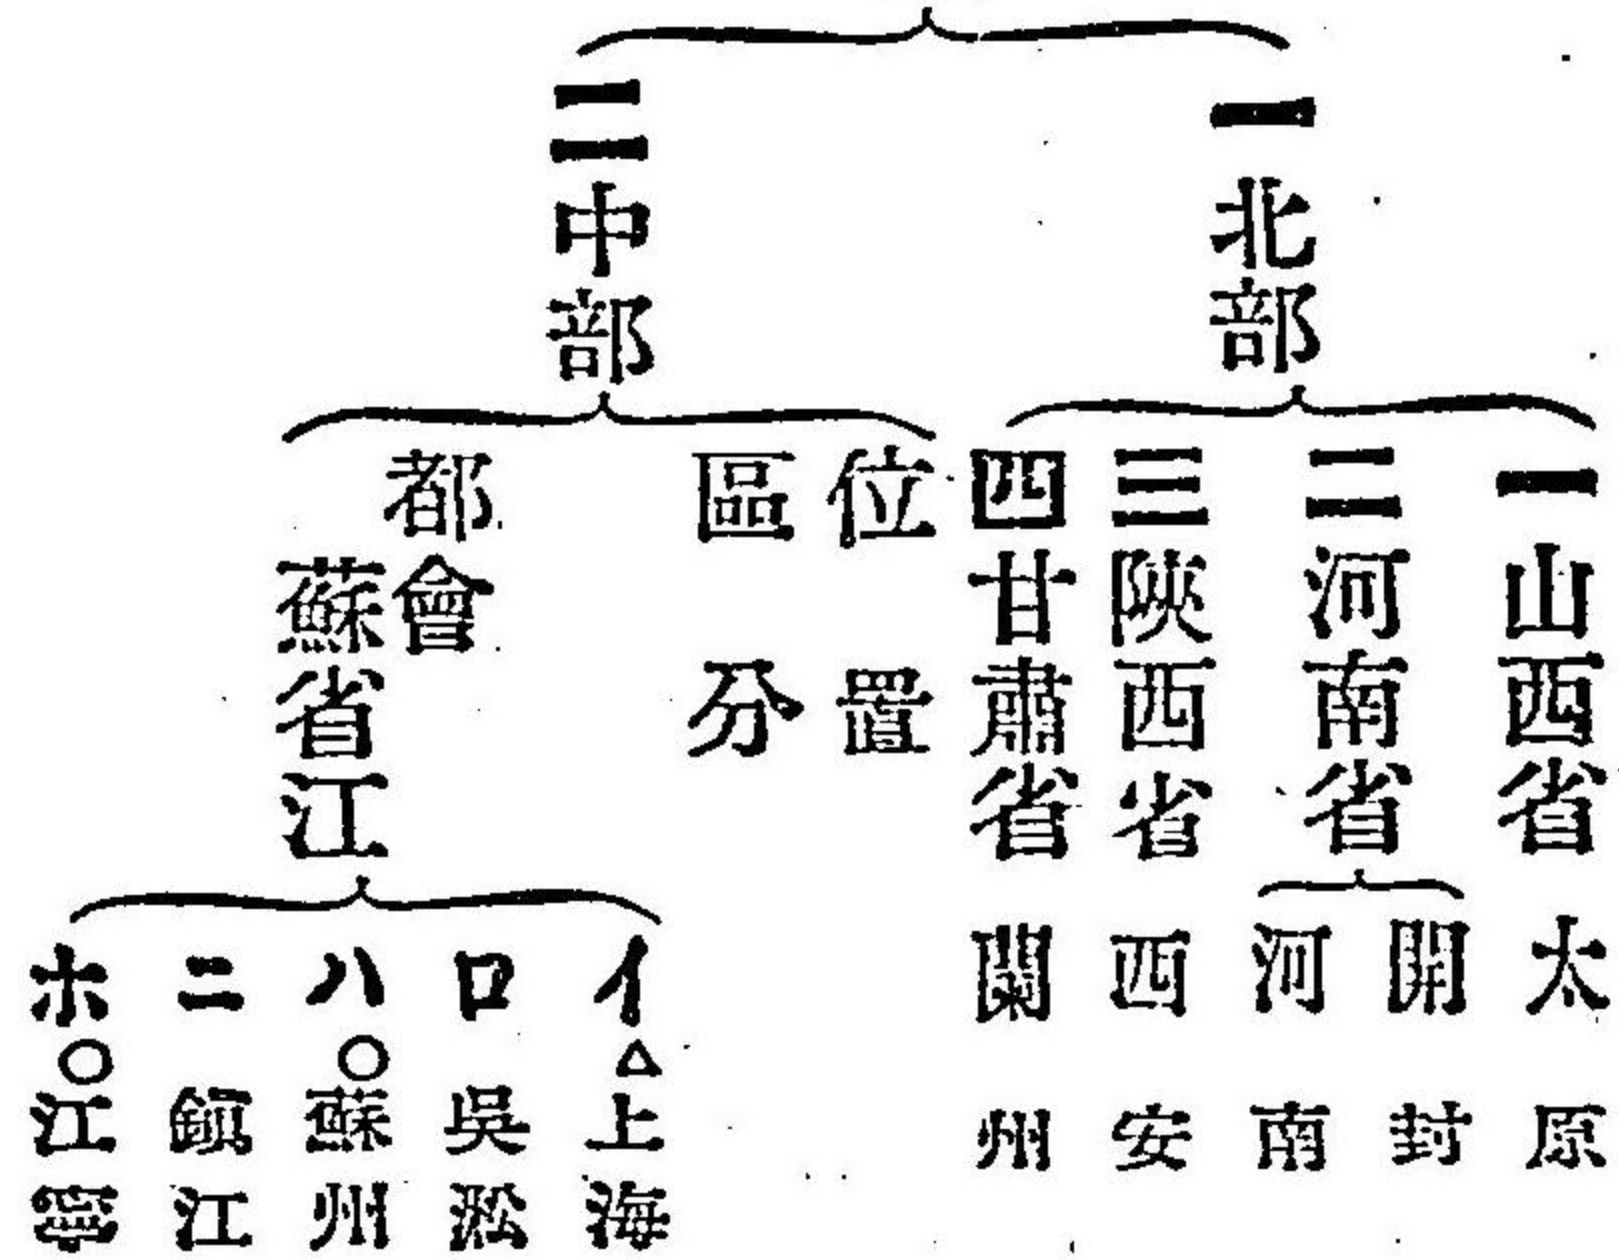 一北部
一山西省
太原
二河南省
開封
河南
三陝西省
西安
四甘肅省
蘭州
二中部
位置
區分
都會
蘇省江
イ△上海
ロ吳淞
ハ○蘇州
ニ鎭江
ホ○江寧